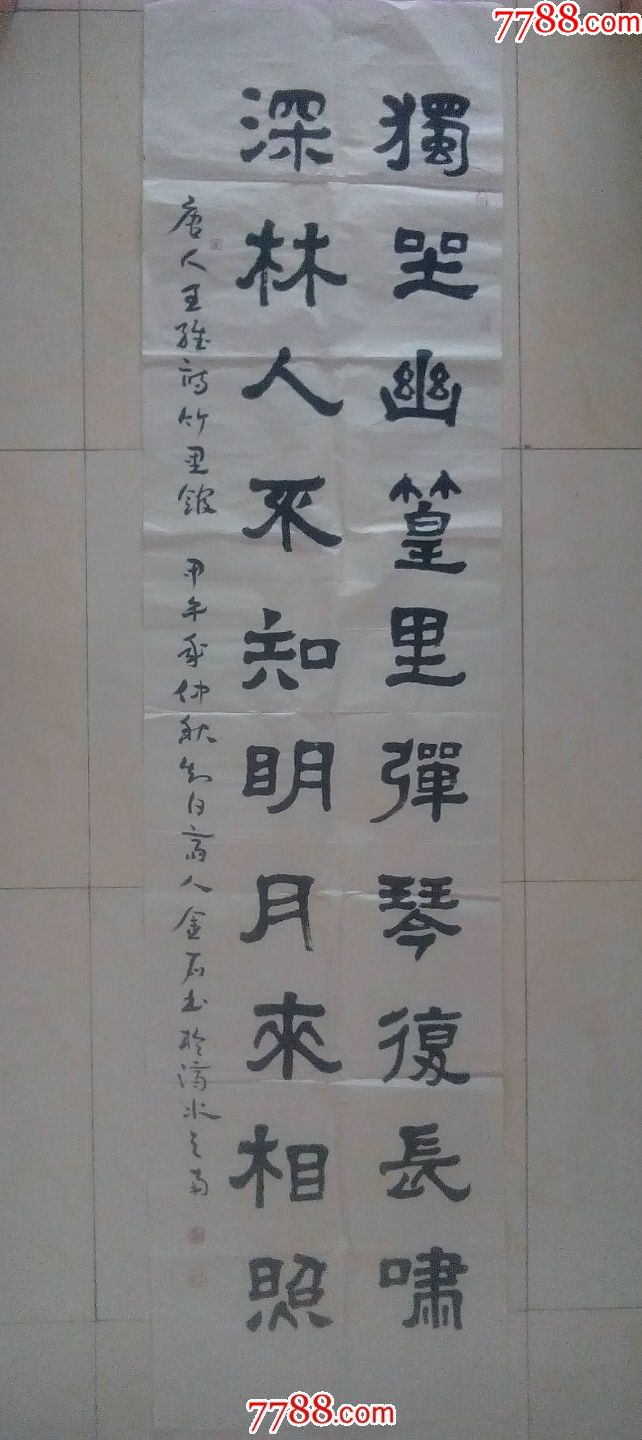 7788.com
獨坐幽篁里彈琴復長嘯
深林人不知明月來相照
唐人王維詩竹里館 甲午年仲秋知白齋人金石书於濟水之南
7788.com